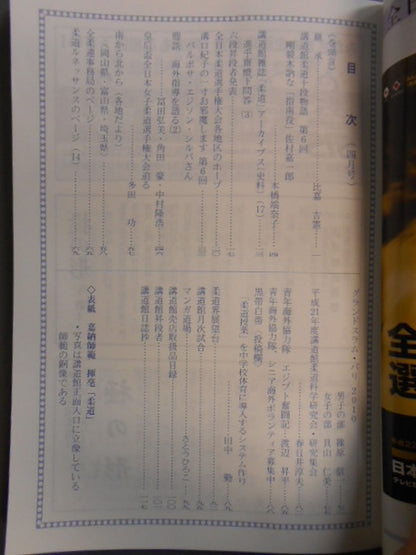 目次(四月号)
〈巻頭言〉
継承……比嘉吉憲…一
講道館柔道十段物語 第6回
剛毅木訥な「指南役」佐村嘉一郎
……本橋端奈子…四
講道館雑誌〈柔道〉アーカイブス(史料)(17)…一三
選手齋戒下問答(3)
六段昇段者発表……一七
全日本柔道選手権大会各地区のホープ……二〇
溝口紀子の一寸お邪魔します 第6回
バルボサ・エジソン・シルバさん
鼎談 海外指導を語る(2)
冨田弘美・角田豪・中村隆浩…四六
皇后盃全日本女子柔道選手権大会迫る
……多田功…五七
南から北から(各地だより)
(岡山県・富山県・埼玉県)
全柔連事務局のページ
柔道ルネッサンスのページ(14)
グランドスラム・パリ2010
男子の部 篠原信一
女子の部 貝山仁美
平成21年度講道館柔道科学研究会・研究集会
……春日井淳夫
青年海外協力隊 エジプト奮闘記 渡辺昇平
青年海外協力隊、シニア海外ボランティア募集中
黒帯白帯(投稿欄)
「柔道授業」を中学校体育に導入するシステム作り
……田中勤
柔道界展望台
講道館月次試合
マンガ道場……さとうひろこ
講道館売店取扱品目録
講道館昇段者
講道館日誌抄
◇表紙 嘉納師範 揮毫「柔道」
・写真は講道館正面入口に立像している
師範の銅像である
全
選
日本
テレビ